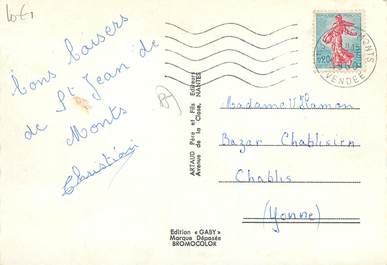 bons baisers
de St Jean de
Monts
Christian
ARTAUD Père et Fils Editeurs
Avenue de la Close, NANTES
Edition « GABY »
Marque Déposée
BROMOCOLOR
MONTS
VENDÉE
0,20
Madame V Hamon
Bazar Chablisien
Chablis
(Yonne)